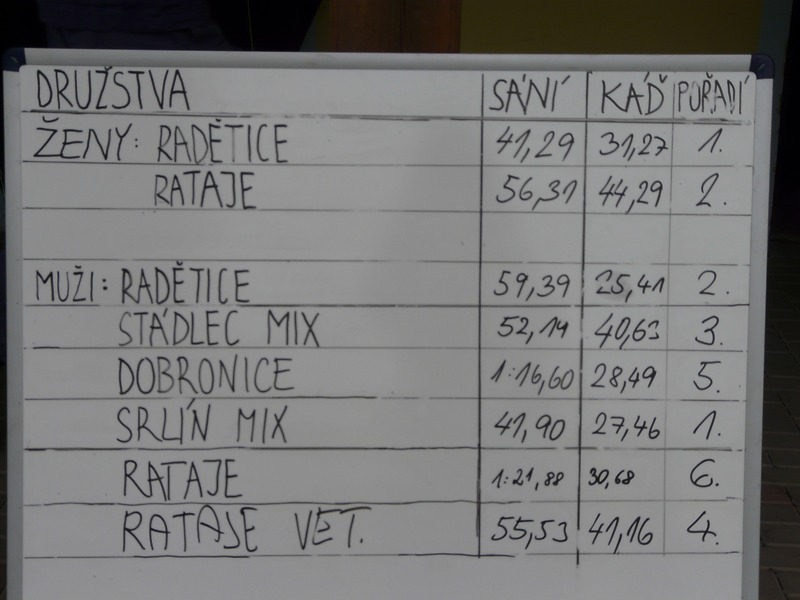 DRUŽSTVA SÁNÍ KÁĎ POŘADÍ
ŽENY: RADĚTICE 41,29 31,27 1.
RATAJE 56,31 44,29 2.
MUŽI: RADĚTICE 59,39 25,41 2.
STÁDLEC MIX 52,14 40,63 3.
DOBRONICE 1:16,60 28,49 5.
SRLÍN MIX 41,90 27,46 1.
RATAJE 1:21,88 30,68 6.
RATAJE VET. 55,53 41,16 4.